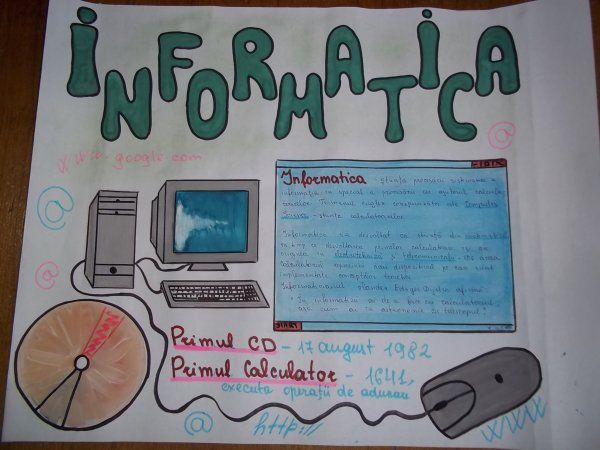 INFORMATICA
@
www.google.com
@
@
Informatica - știința procesării sistematice a
informației, în special a procesării cu ajutorul calcula-
toarelor. Termenul englez corespunzător este Computer
Science - știința calculatoarelor.
Informatica s-a dezvoltat ca știință din matematică
cu dezvoltarea primelor calculatoare
originea în și telecomunicații
calculatoarul reprezintă sau dispozitivul pe care sunt
implementate conceptele teoretice
Informaticianul olandez Edsger Dijkstra afirma
" În informatică ai de-a face cu calculatorul
așa cum ai în astronomie cu telescopul "
START
Primul CD - 17 august 1982
Primul Calculator - 1641,
executa operații de adunare
@
http://
www